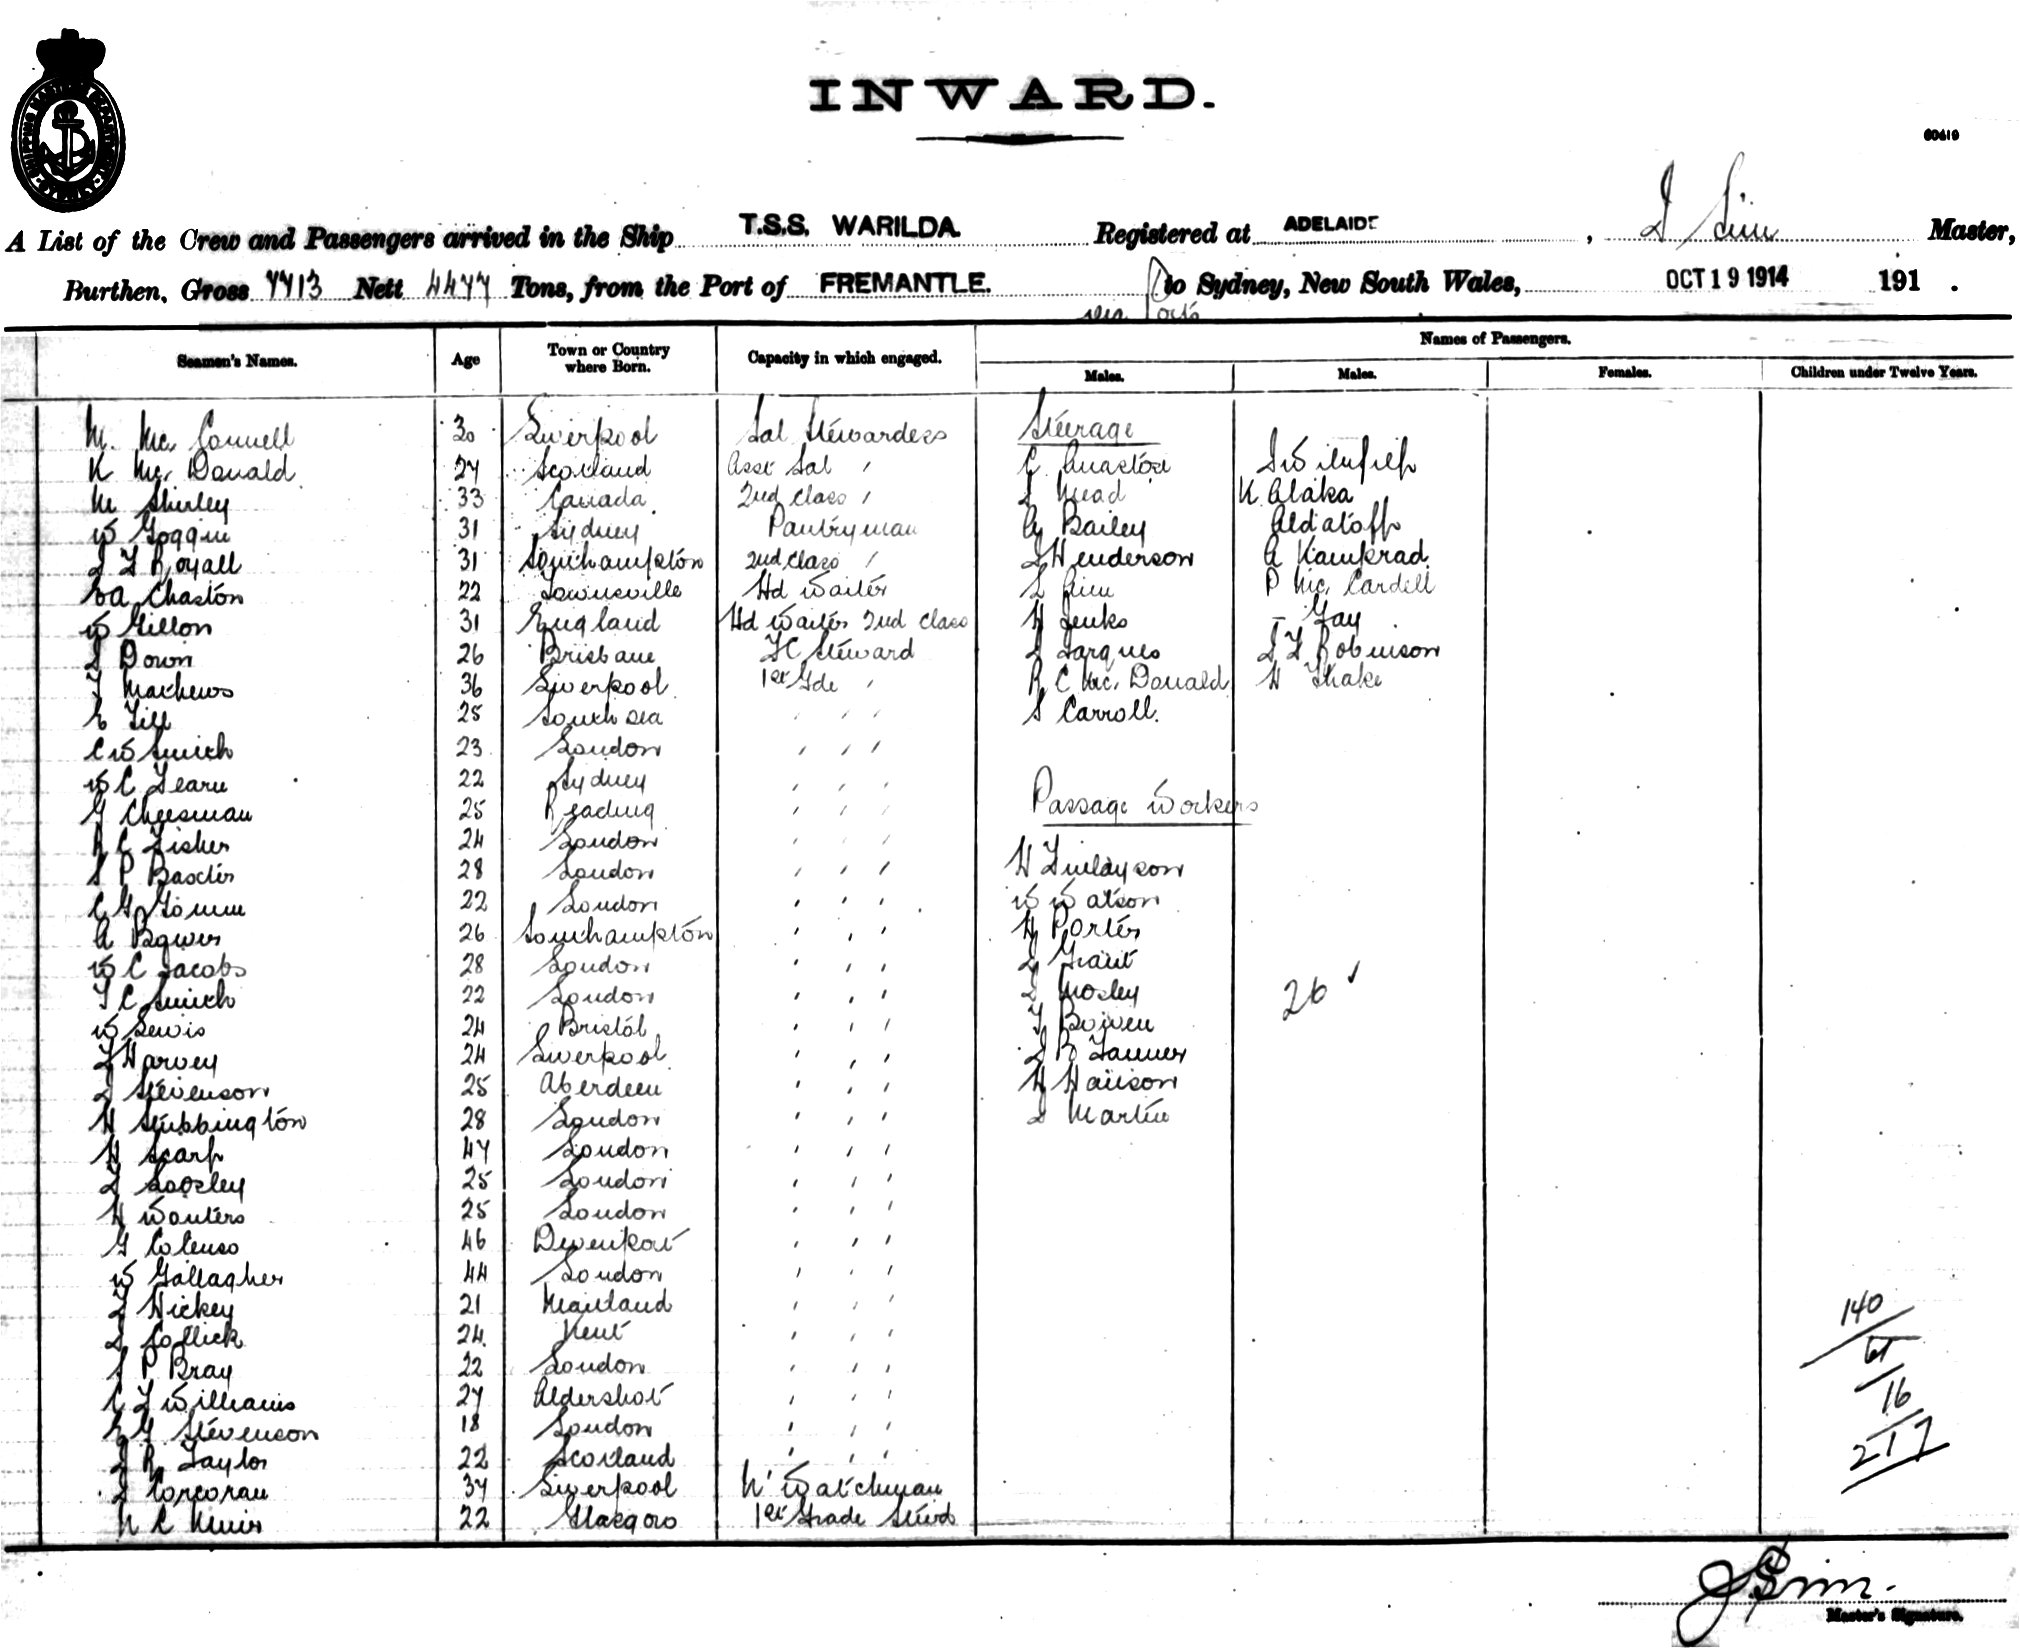 INWARD.
60619
A List of the Crew and Passengers arrived in the Ship T.S.S. WARILDA. Registered at ADELAIDE, J Sim Master,
Burthen, Gross 7713 Nett 4477 Tons, from the Port of FREMANTLE. to Sydney, New South Wales, OCT 19 1914 191 .
via Ports
Seamen's Names. Age Town or Country where Born. Capacity in which engaged. Names of Passengers.
Males. Males. Females. Children under Twelve Years.
M. Mc. Connell 30 Liverpool Sal Stewardess Steerage
K Mc. Donald 27 Scotland Asst Sal "
M Shirley 33 Canada 2nd Class " J Mead K Alaka
W Goggin 31 Sydney Pantryman G Bailey Aldatoff
J F Royall 31 Southampton 2nd Class " J Henderson A Kamkrad
E A Chaston 22 Townsville Hd Waiter P Mc. Cardell
W Gillon 31 England Hd Waiter 2nd Class H Jenks - Gay
J Down 26 Brisbane F C Steward J Jarques J F Robinson
F Mathews 36 Liverpool 1st Gde " R C Mc. Donald H Thake
E Till 25 Southsea " " " S Carroll.
C W Smith 23 London " " "
W C Fearn 22 Sydney " " "
G Cheesman 25 Reading " " " Passage Workers
R C Fisher 24 London " " "
S P Baxter 28 London " " " H Finlayson
C G Gomm 22 London " " " W Watson
A Bower 26 Southampton " " " H Porter
W C Jacobs 28 London " " " J Grant
F C Smith 22 London " " " J Mosley 26 ✓
W Lewis 24 Bristol " " " F Bowen
F Harvey 24 Liverpool " " " J B Tanner
J Stevenson 25 Aberdeen " " " H Hanson
H Stubbington 28 London " " " J Martin
H Scarf 47 London " " "
F Loosley 25 London " " "
H Wouters 25 London " " "
G Colenso 46 Devenport " " "
W Gallagher 44 London " " "
F Hickey 21 Maitland " " "
J Collick 24 Kent " " "
S P Bray 22 London " " "
C F Williams 27 Aldershot " " "
E G Stevenson 18 London " " "
J R Taylor 22 Scotland " " "
J Corcoran 37 Liverpool N' Watchman
N C Muir 22 Glasgow 1st Grade Stwd
140
61
16
217
J Sim.
Master's Signature.